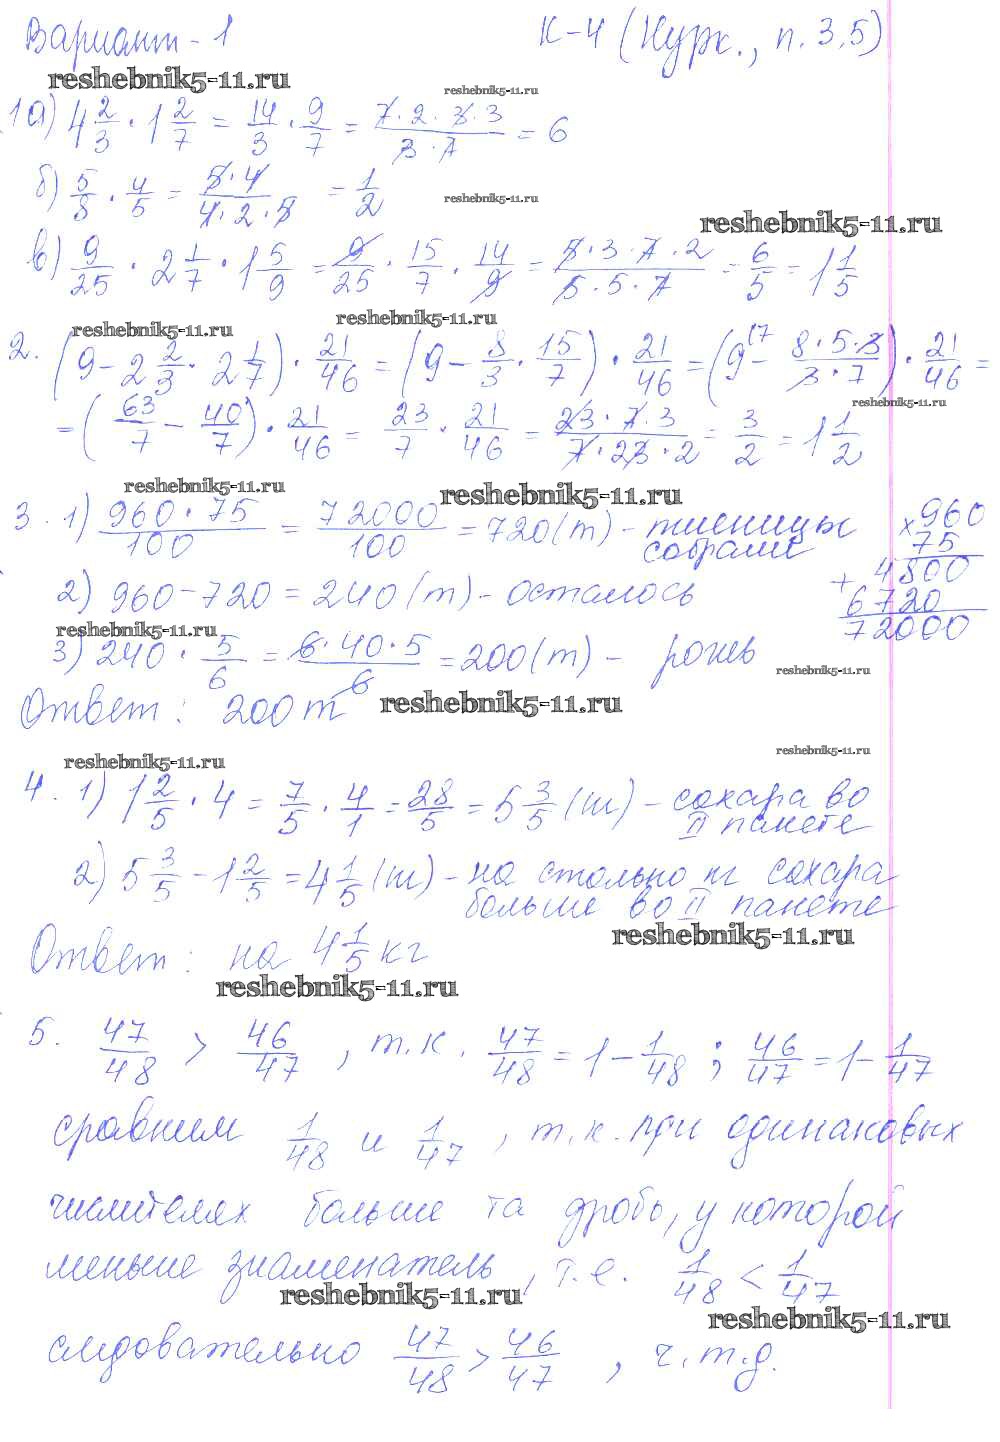 Вариант - 1 К-4 (Курк., п. 3,5)
reshebnik5-11.ru
reshebnik5-11.ru
1 а) 4 2/3 · 1 2/7 = 14/3 · 9/7 = 7·2·3·3/3·1 = 6
б) 5/8 · 4/5 = 5·4/4·2·5 = 1/2
reshebnik5-11.ru
reshebnik5-11.ru
в) 9/25 · 2 1/7 · 1 5/9 = 9/25 · 15/7 · 14/9 = 5·3·7·2/5·5·7 = 6/5 = 1 1/5
reshebnik5-11.ru
reshebnik5-11.ru
2. (9 - 2 2/3 · 2 1/7) · 21/46 = (9 - 8/3 · 15/7) · 21/46 = (9 (7 - 8·5·3/3·7) · 21/46 =
reshebnik5-11.ru
= (63/7 - 40/7) · 21/46 = 23/7 · 21/46 = 23·7·3/7·23·2 = 3/2 = 1 1/2
reshebnik5-11.ru
reshebnik5-11.ru
3. 1) 960·75/100 = 72000/100 = 720 (т) - пшеницы собрали
× 960
75
4800
+ 6720
72000
2) 960 - 720 = 240 (т) - осталось
reshebnik5-11.ru
3) 240 · 5/6 = 6·40·5/6 = 200 (т) - рожь
reshebnik5-11.ru
Ответ: 200 т
reshebnik5-11.ru
reshebnik5-11.ru
reshebnik5-11.ru
4. 1) 1 2/5 · 4 = 7/5 · 4/1 = 28/5 = 5 3/5 (кг) - сахара во
II пакете
2) 5 3/5 - 1 2/5 = 4 1/5 (кг) - на столько кг сахара
больше во II пакете
reshebnik5-11.ru
Ответ: на 4 1/5 кг
reshebnik5-11.ru
5. 47/48 > 46/47, т.к. 47/48 = 1 - 1/48; 46/47 = 1 - 1/47
сравним 1/48 и 1/47, т.к. при одинаковых
числителях больше та дробь, у которой
меньше знаменатель, т.е. 1/48 < 1/47
reshebnik5-11.ru
reshebnik5-11.ru
следовательно 47/48 > 46/47, ч.т.д.